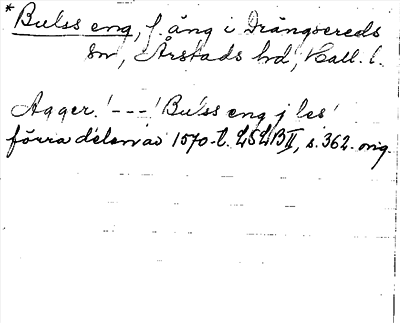 *Bulss eng, f. äng i Drängsereds
sn, Årstads hd, Hall. l.
Agger: '--- 'Bulss eng j les'
förra delen av 1570-t. LSLB II, s. 362. orig.